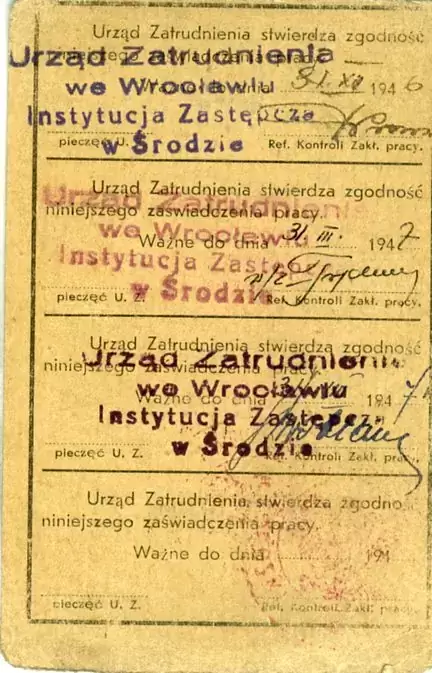 Urząd Zatrudnienia stwierdza zgodność
niniejszego zaświadczenia pracy.
Ważne do dnia 31.XII 1946
pieczęć U. Z. Ref. Kontroli Zakł. pracy.
Urząd Zatrudnienia
we Wrocławiu
Instytucja Zastępcza
w Środzie
Urząd Zatrudnienia stwierdza zgodność
niniejszego zaświadczenia pracy.
Ważne do dnia 31. III. 1947
pieczęć U. Z. Ref. Kontroli Zakł. pracy.
Urząd Zatrudnienia
we Wrocławiu
Instytucja Zastępcza
w Środzie
Urząd Zatrudnienia stwierdza zgodność
niniejszego zaświadczenia pracy.
Ważne do dnia 1947
pieczęć U. Z. Ref. Kontroli Zakł. pracy.
Urząd Zatrudnienia
we Wrocławiu
Instytucja Zastępcza
w Środzie
Urząd Zatrudnienia stwierdza zgodność
niniejszego zaświadczenia pracy.
Ważne do dnia 194
pieczęć U. Z. Ref. Kontroli Zakł. pracy.